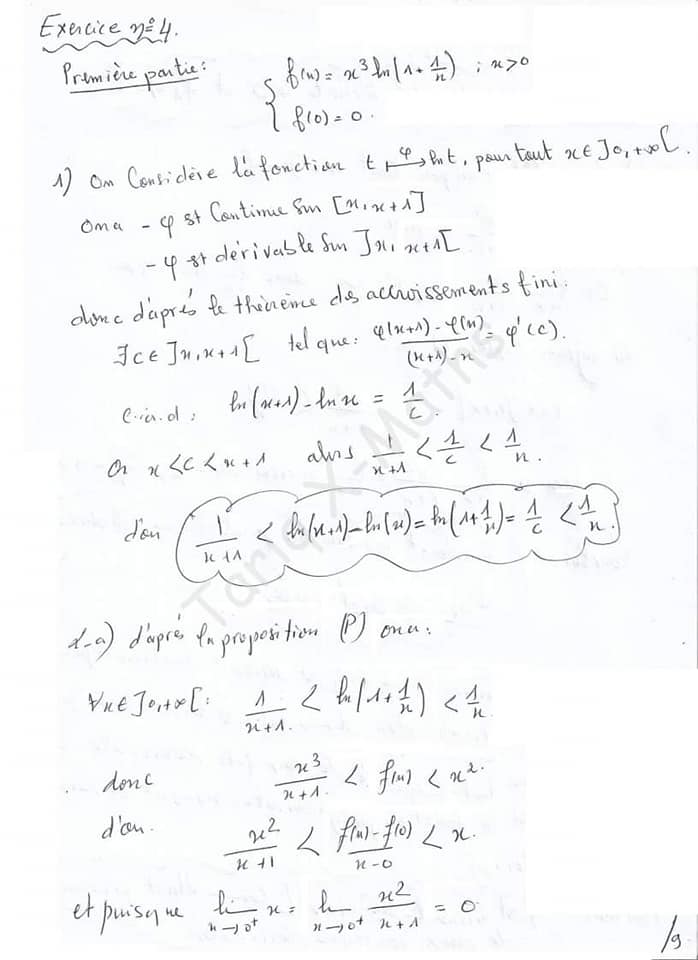 Exercice n°4.
Première partie : { f(x) = x³ ln(1 + 1/x) ; x > 0
f(0) = 0.
1) On Considère la fonction t ⟼^φ ln t, pour tout x ∈ ]0, +∞[.
Ona - φ est Continue sur [x, x+1]
- φ est dérivable sur ]x, x+1[
donc d'après le théorème des accroissements fini :
∃c ∈ ]x, x+1[ tel que : (φ(x+1) - φ(x))/((x+1) - x) = φ'(c).
C.à.d : ln(x+1) - ln x = 1/c.
Or x < c < x+1 alors 1/(x+1) < 1/c < 1/x.
d'où 1/(x+1) < ln(x+1) - ln(x) = ln(1 + 1/x) = 1/c < 1/x.
2-a) d'après la proposition (P) ona :
∀x ∈ ]0, +∞[ : 1/(x+1) < ln(1 + 1/x) < 1/x
donc x³/(x+1) < f(x) < x².
d'où x²/(x+1) < (f(x) - f(0))/(x-0) < x.
et puisque lim_{x→0⁺} x = lim_{x→0⁺} x²/(x+1) = 0
/9
Tariq X-Maths